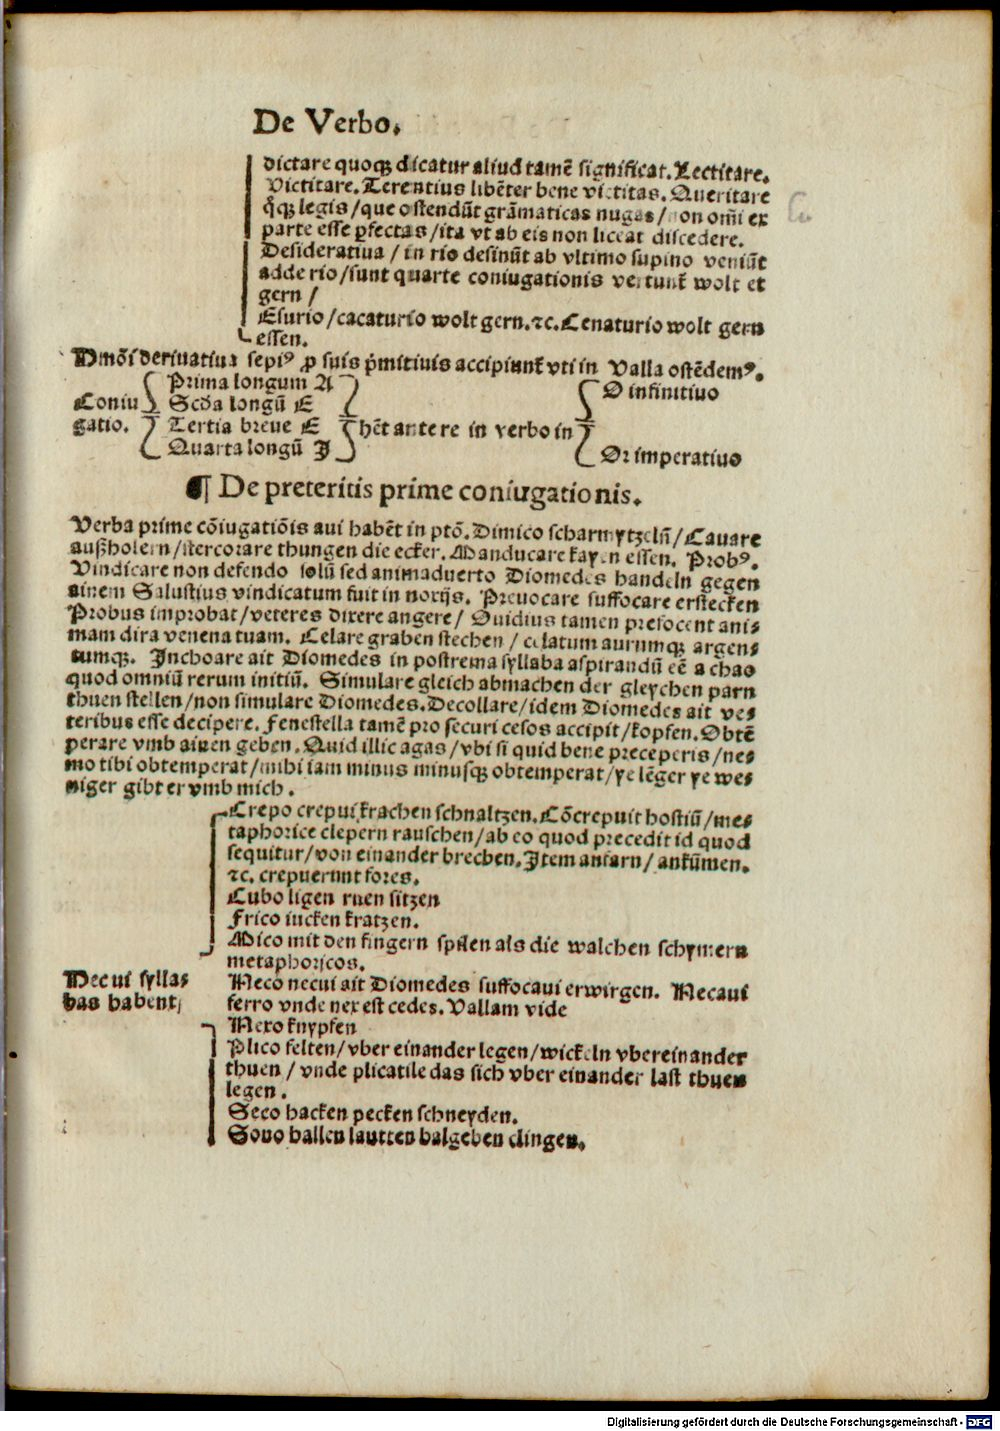 De Verbo.
dictare quoqꝫ dicatur aliud tamē significat. Lectitare.
Victitare. Terentius libēter bene victitas. Queritare
qͦqꝫ legis / que ostendūt grāmaticas nugas / non om̄i ex
parte esse ꝑfectas / ita vt ab eis non liceat discedere.
Desideratiua / in rio desinūt ab vltimo supino veniūt
adde rio / sunt quarte coniugationis vertunt̄ wolt et
gern /
Esurio / cacaturio wolt gern. ⁊c. Cenaturio wolt gern
essen.
deriuatiua sepiꝰ ꝓ suis pͥmitiuis accipiunt̄ vti in Valla ostēdemꝰ.
Prima longum A
O infinitiuo
Coniu Scd̄a longū E
gatio. Tertia breue E hēt ante re in verbo in
Quarta longū I
Or imperatiuo
¶ De preteritis prime coniugationis.
Verba prime cōiugatiōis aui habēt in ptō. Dimico scharmytzelū / Cauare
außholern / stercorare thungen die ecker. Manducare kayen essen. Probꝰ.
Vindicare non defendo solū sed animaduerto Diomedes handeln gegen
ainem Salustius vindicatum fuit in noxijs. Preuocare suffocare erstecken
Probus improbat / veteres dixere angere / Ouidius tamen prefocent ani⸗
mam dira venena tuam. Celare graben stechen / celatum aurumqꝫ argen⸗
tumqꝫ. Inchoare ait Diomedes in postrema syllaba aspirandū eē a chao
quod omniū rerum initiū. Simulare gleich abmachen der gleychen parn
thuen stellen / non simulare Diomedes. Decollare / idem Diomedes ait ve⸗
teribus esse decipere. Fenestella tamē pro securi cesos accipit / kopfen. Obtē
perare vmb ainen geben. Quid illic agas / vbi si quid bene preceperis / ne⸗
mo tibi obtemperat / mihi iam minus minusqꝫ obtemperat / ye lēger ye we⸗
niger gibt er vmb mich.
Crepo crepui krachen schnaltzen. Cōcrepuit hostiū / me⸗
taphorice clepern rauschen / ab eo quod precedit id quod
sequitur / von einander brechen. Item anfarn / ankūmen.
⁊c. crepuerunt fores.
Cubo ligen ruen sitzen
Frico iucken kratzen.
Mico mit den fingern spilen als die walchen schymern
metaphoricos.
Hec ui sylla⸗
bas habent /
Neco necui ait Diomedes suffocaui erwirgen. Necaui
ferro vnde nex est cedes. Vallam vide
Nexo knypfen
Plico felten / vber einander legen / wickeln vbereinander
thuen / vnde plicatile das sich vber einander last thuen
legen.
Seco hacken pecken schneyden.
Sono hallen lautten halgeben clingen.
Digitalisierung gefördert durch die Deutsche Forschungsgemeinschaft - DFG